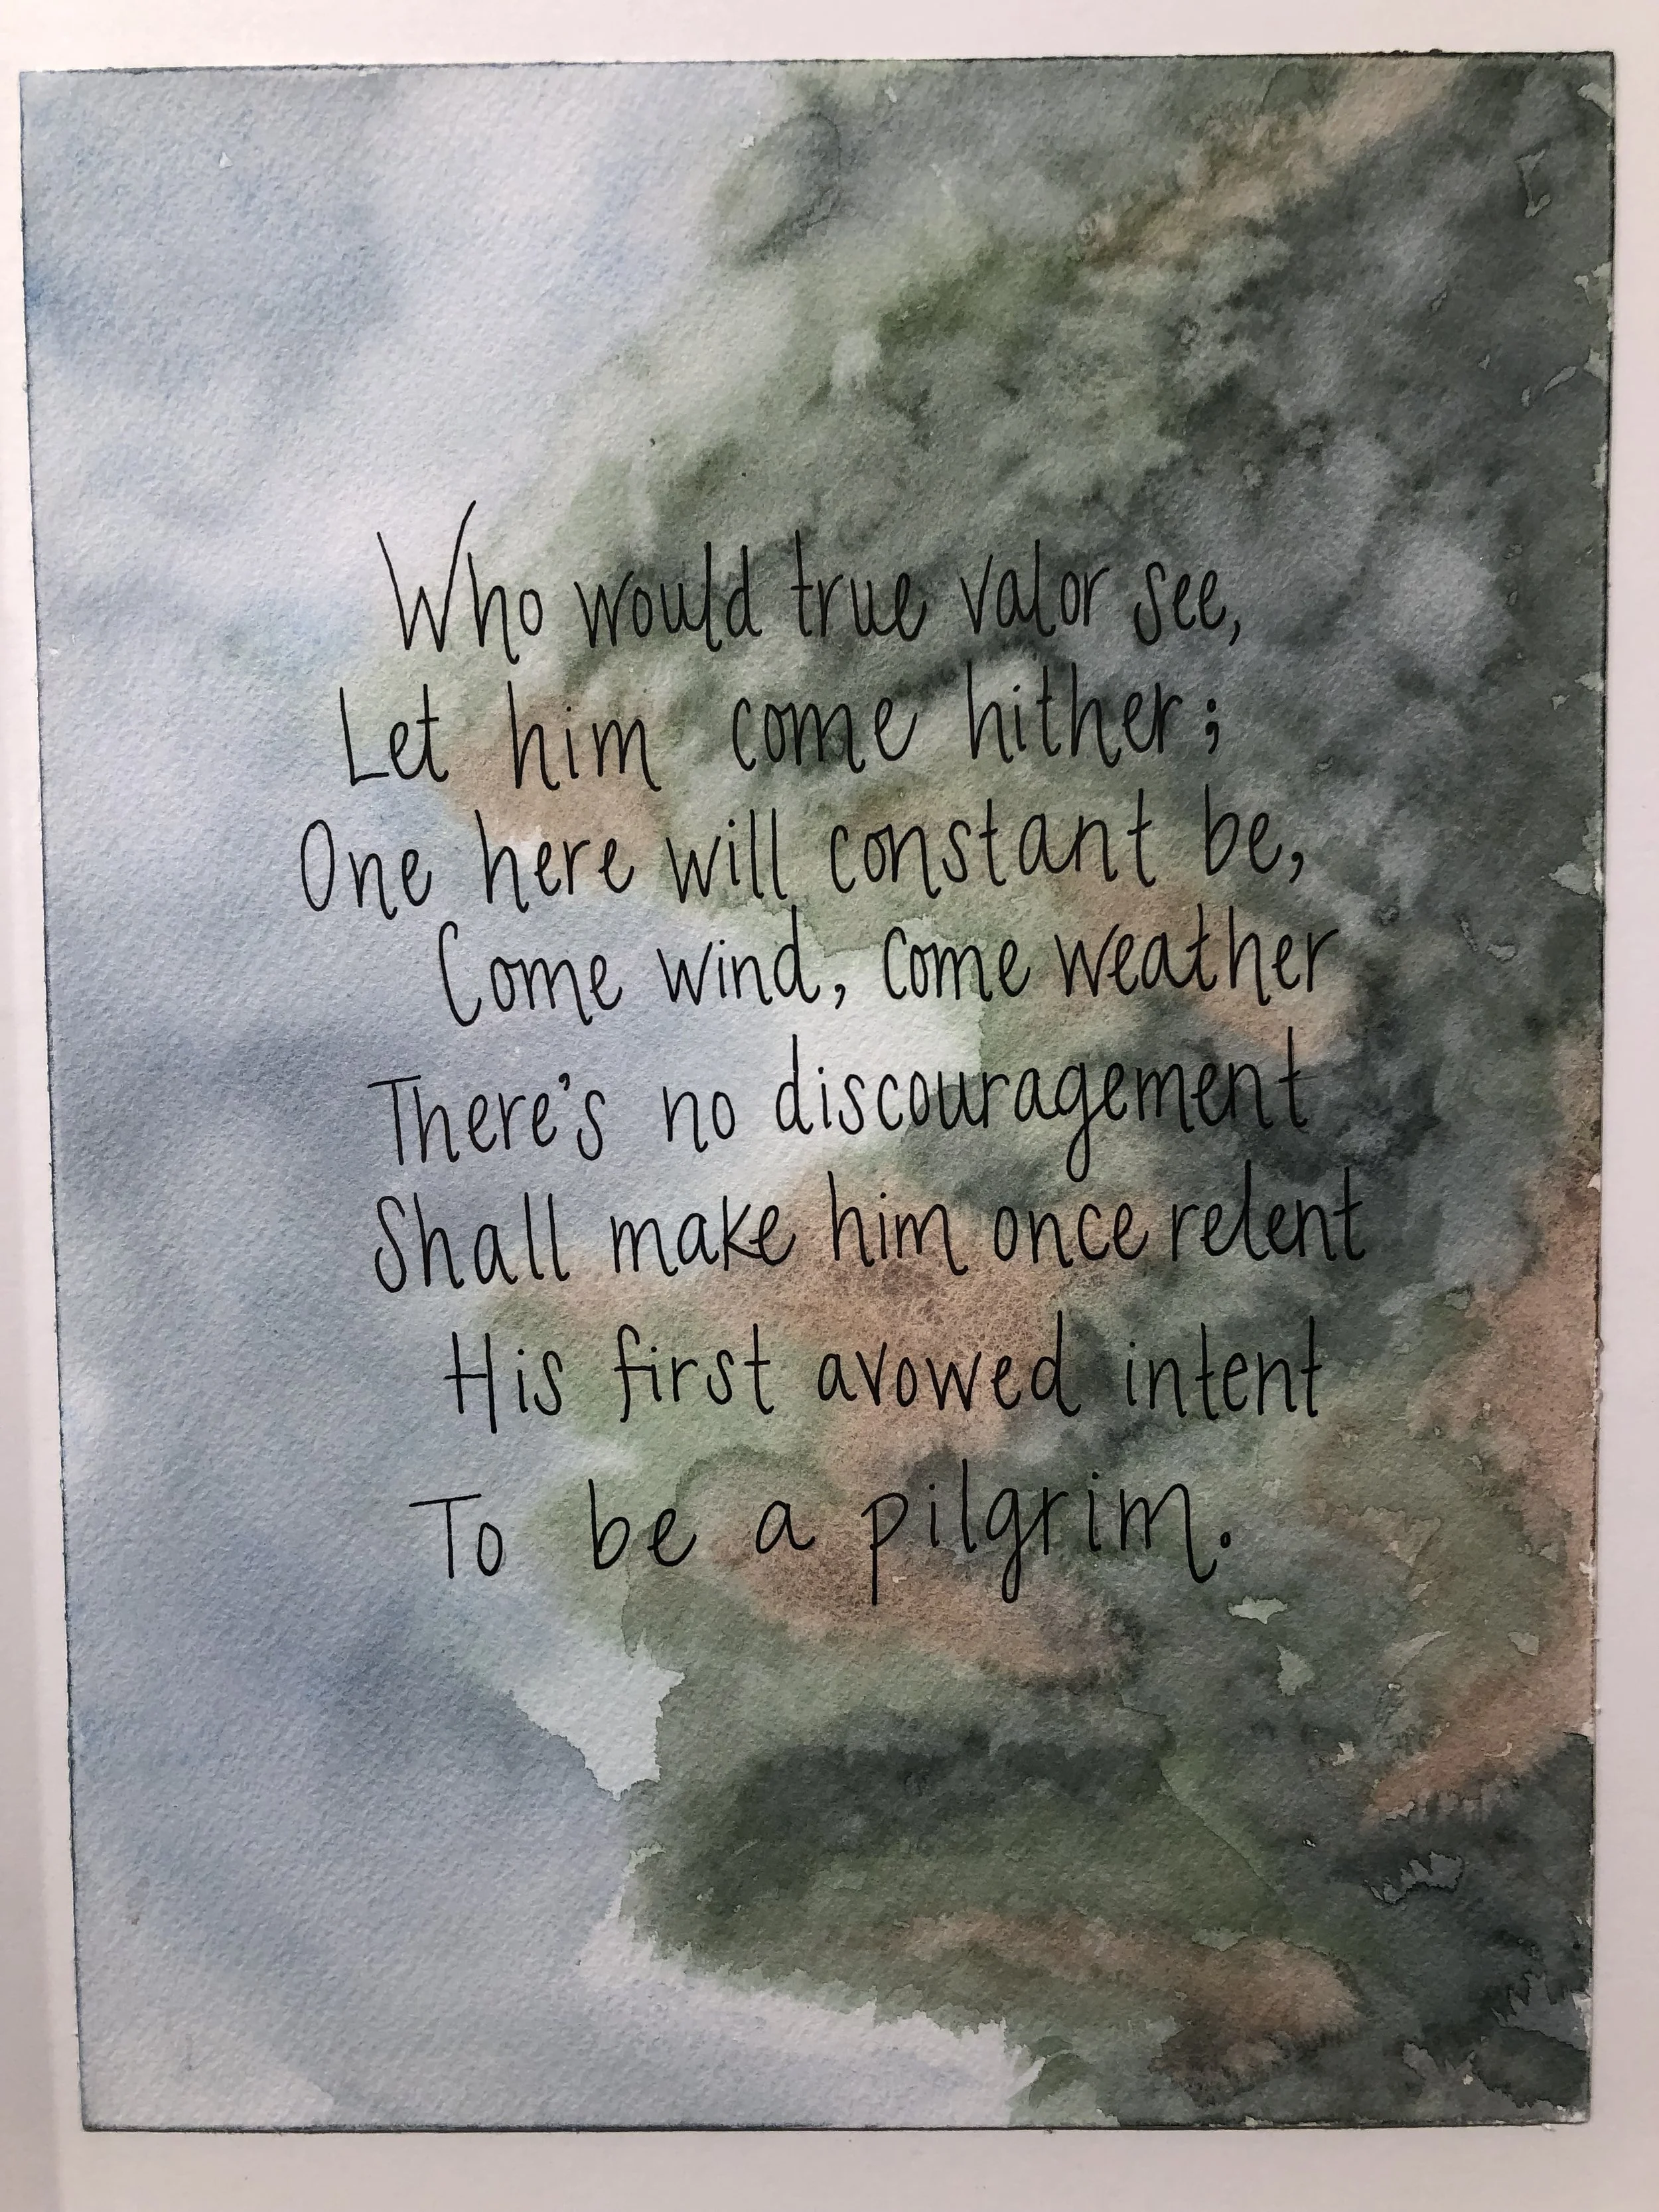 Who would true valor see,
Let him come hither;
One here will constant be,
Come wind, come weather
There's no discouragement
Shall make him once relent
His first avowed intent
To be a pilgrim.